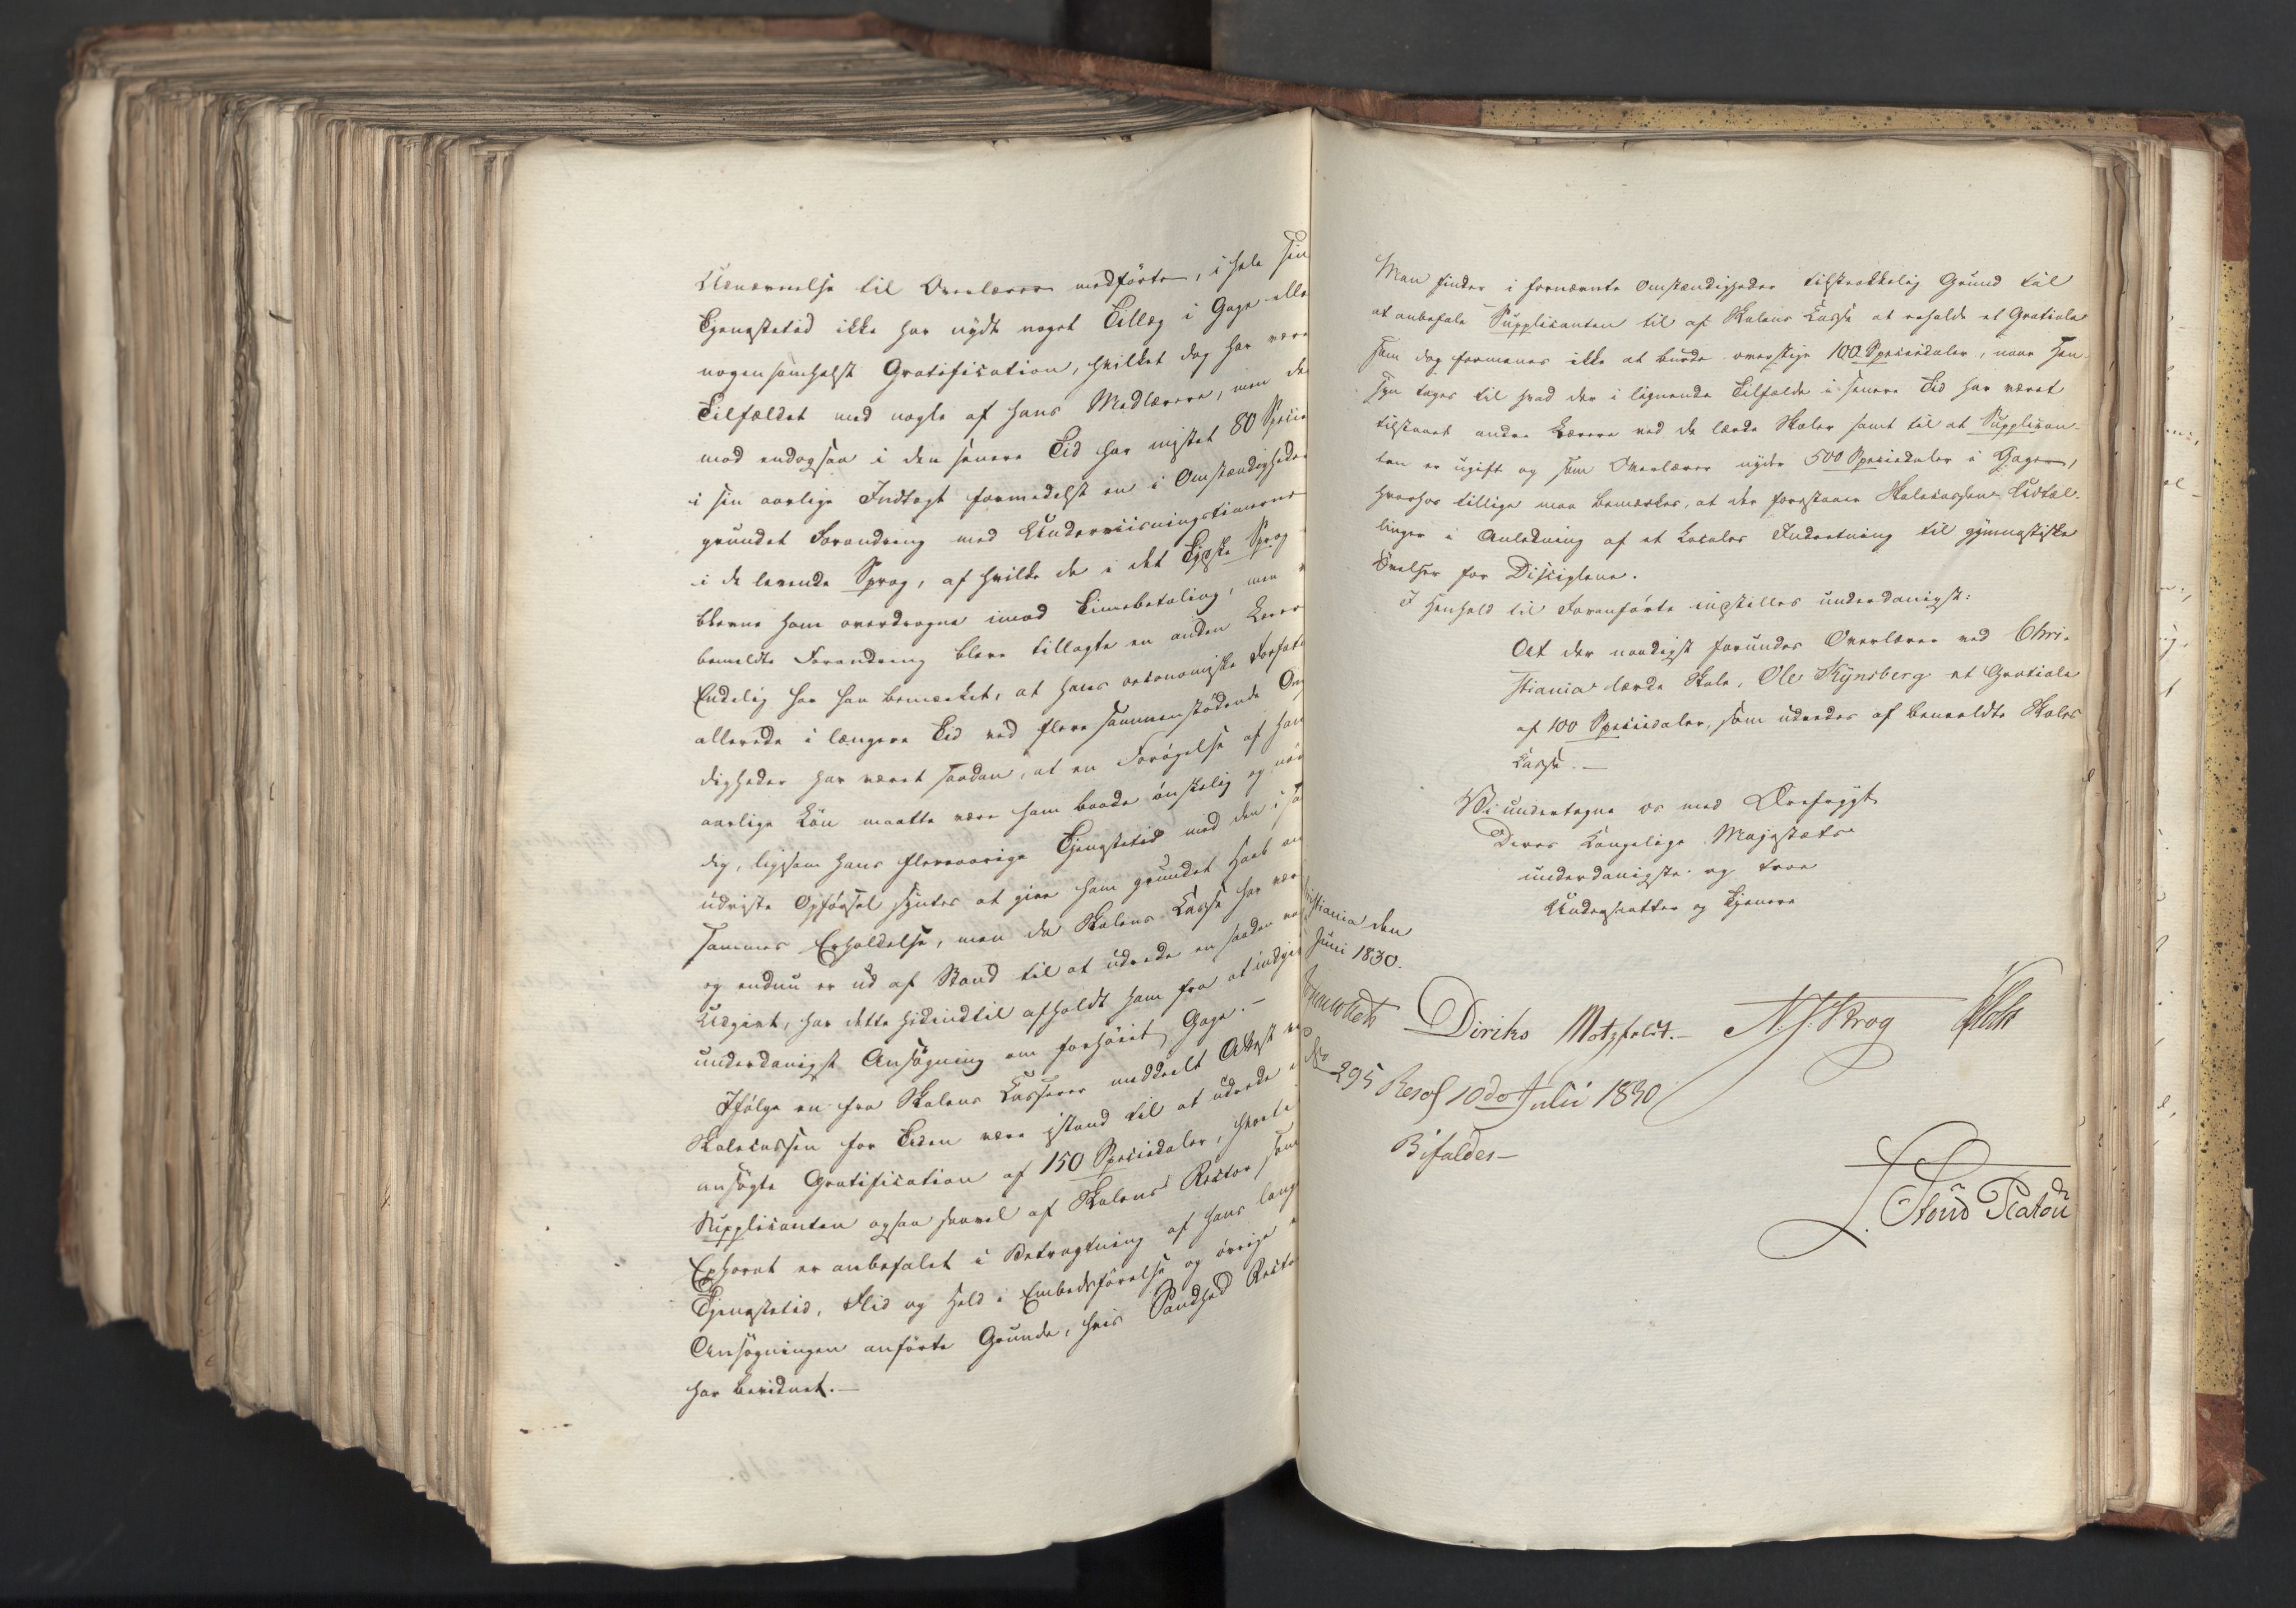 Udnævnelse til Overlærer medførte, i hele sin
Tjenestetid ikke har nydt noget Tillæg i Gage elle
nogensomhelst Gratification, hvilket dog har være
Tilfældet med nogle af hans Medlærere, men der
mod endogsaa i den senere Tid har mistet 80 Specie
i sin aarlige Indtægt formedelst en i Omstændigheder
grundet Forandring med Underviisningstimerne
i de levende Sprog, af hvilke de i det Tydske Sprog
bleve ham overdragne imod Timebetaling, men
bemeldte Forandring bleve tillagte en anden Lærer
Endelig har han bemærket, at hans oeconomiske Forfat
allerede i længere Tid ved flere sammenstødende Om
digheder har været saadan, at en Forøgelse af han
aarlige Løn maatte være ham baade ønskelig og nød
dig, ligesom hans fleeraarige Tjenestetid med den i sa
udviste Opførsel syntes at give ham grundet Haab om
sammes Erholdelse, men da Skolens Casse har vær
og endnu er ud af Stand til at udrede en saadan
Udgivt, har dette hidindtil afholdt ham fra at indgi
underdanigst Ansøgning om forhøiet Gage.—
Ifølge en fra Skolens Casserer meddeelt Attest
Skolecassen for Tiden være istand til at udrede
ansøgte Gratification af 150 Speciedaler, hvorti
Supplicanten ogsaa saavel af Skolens Rector som
Ephorat er anbefalet i Betragtning af hans lang
Tjenestetid, Flid og Held i Embedsførelse og øvrige
Ansøgningen anførte Grunde, hvis Sandhed Recto
har bevidnet.—
Man finder i fornævnte Omstændigheder tilstrækkelig Grund til
at anbefale Supplicanten til af Skolens Casse at erholde et Gratiale
som dog formenes ikke at burde overstige 100 Speciedaler, naar Hen-
syn tages til hvad der i lignende Tilfælde i senere Tid har været
tilstaaet andre Lærere ved de lærde Skoler samt til at Supplican-
ten er ugift og som Overlærer nyder 500 Speciedaler i Gage,
hvorhos tillige maa bemærkes, at der forestaaer Skolecassen Udtæl-
linger i Anledning af et Locales Indretning til gymnastiske
Øvelser for Disciplene.
I Henhold til Foranførte indstilles underdanigst:
At der naadigst forundes Overlærer ved Chri-
stiania lærde Skole, Ole Kynsberg et Gratiale
af 100 Speciedaler, som udredes af bemeldte Skoles
Casse.—
Vi undertegne os med Ærefrygt
Deres Kongelige Majestæts
underdanigste og troe
Undersaatter og Tjenere
istiania den
Juni 1830.
Diriks Motzfeldt.— N. J. Krog Holst
No 295 Resol 10de Julii 1830
Bifaldes—
F. Stoud Platou